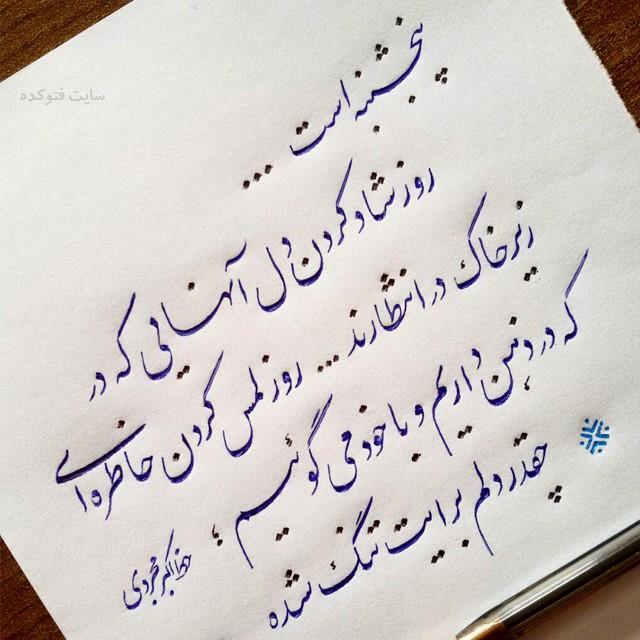 سایت فتوکده
پنجشنبه است ...
روز شاد کردن دل آنهایی که در
زیر خاک در انتظارند ... روز لمس کردن خاطره‌ای
که در ذهن داریم و با خود می گوئیم ؛
چقدر دلم برایت تنگ شده
خط اکبر مجردی